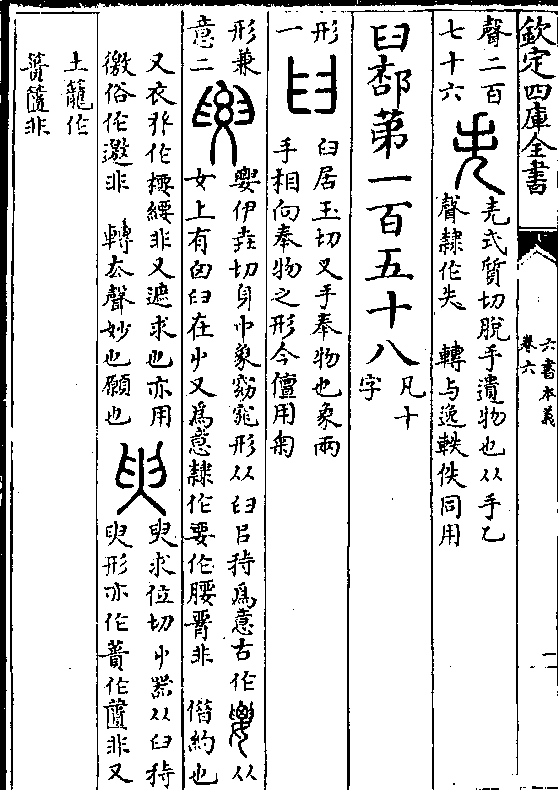 欽定四庫全書
六書本義
卷六
聲二百
七十六
𡴎式質切脫手遺物也从手乙
聲隷作失　轉与逸軼佚同用
𦥑部第一百五十八
凡十
字
形
一
𦥑居玉切叉手奉物也象兩
手相向奉物之形今僃用匊
形兼
意二
伊堯切身中象窈窕形从𦥑呂持爲意古作
从
女上有囟𦥑在中又爲意隷作要作腰非　借約也
又衣作𧝓緩非又遮求也亦用
徼俗作邀非　轉去聲妙也願也
求位切中器从𦥑持
形亦作蕢作匱非又
土籠作
蕢匱非